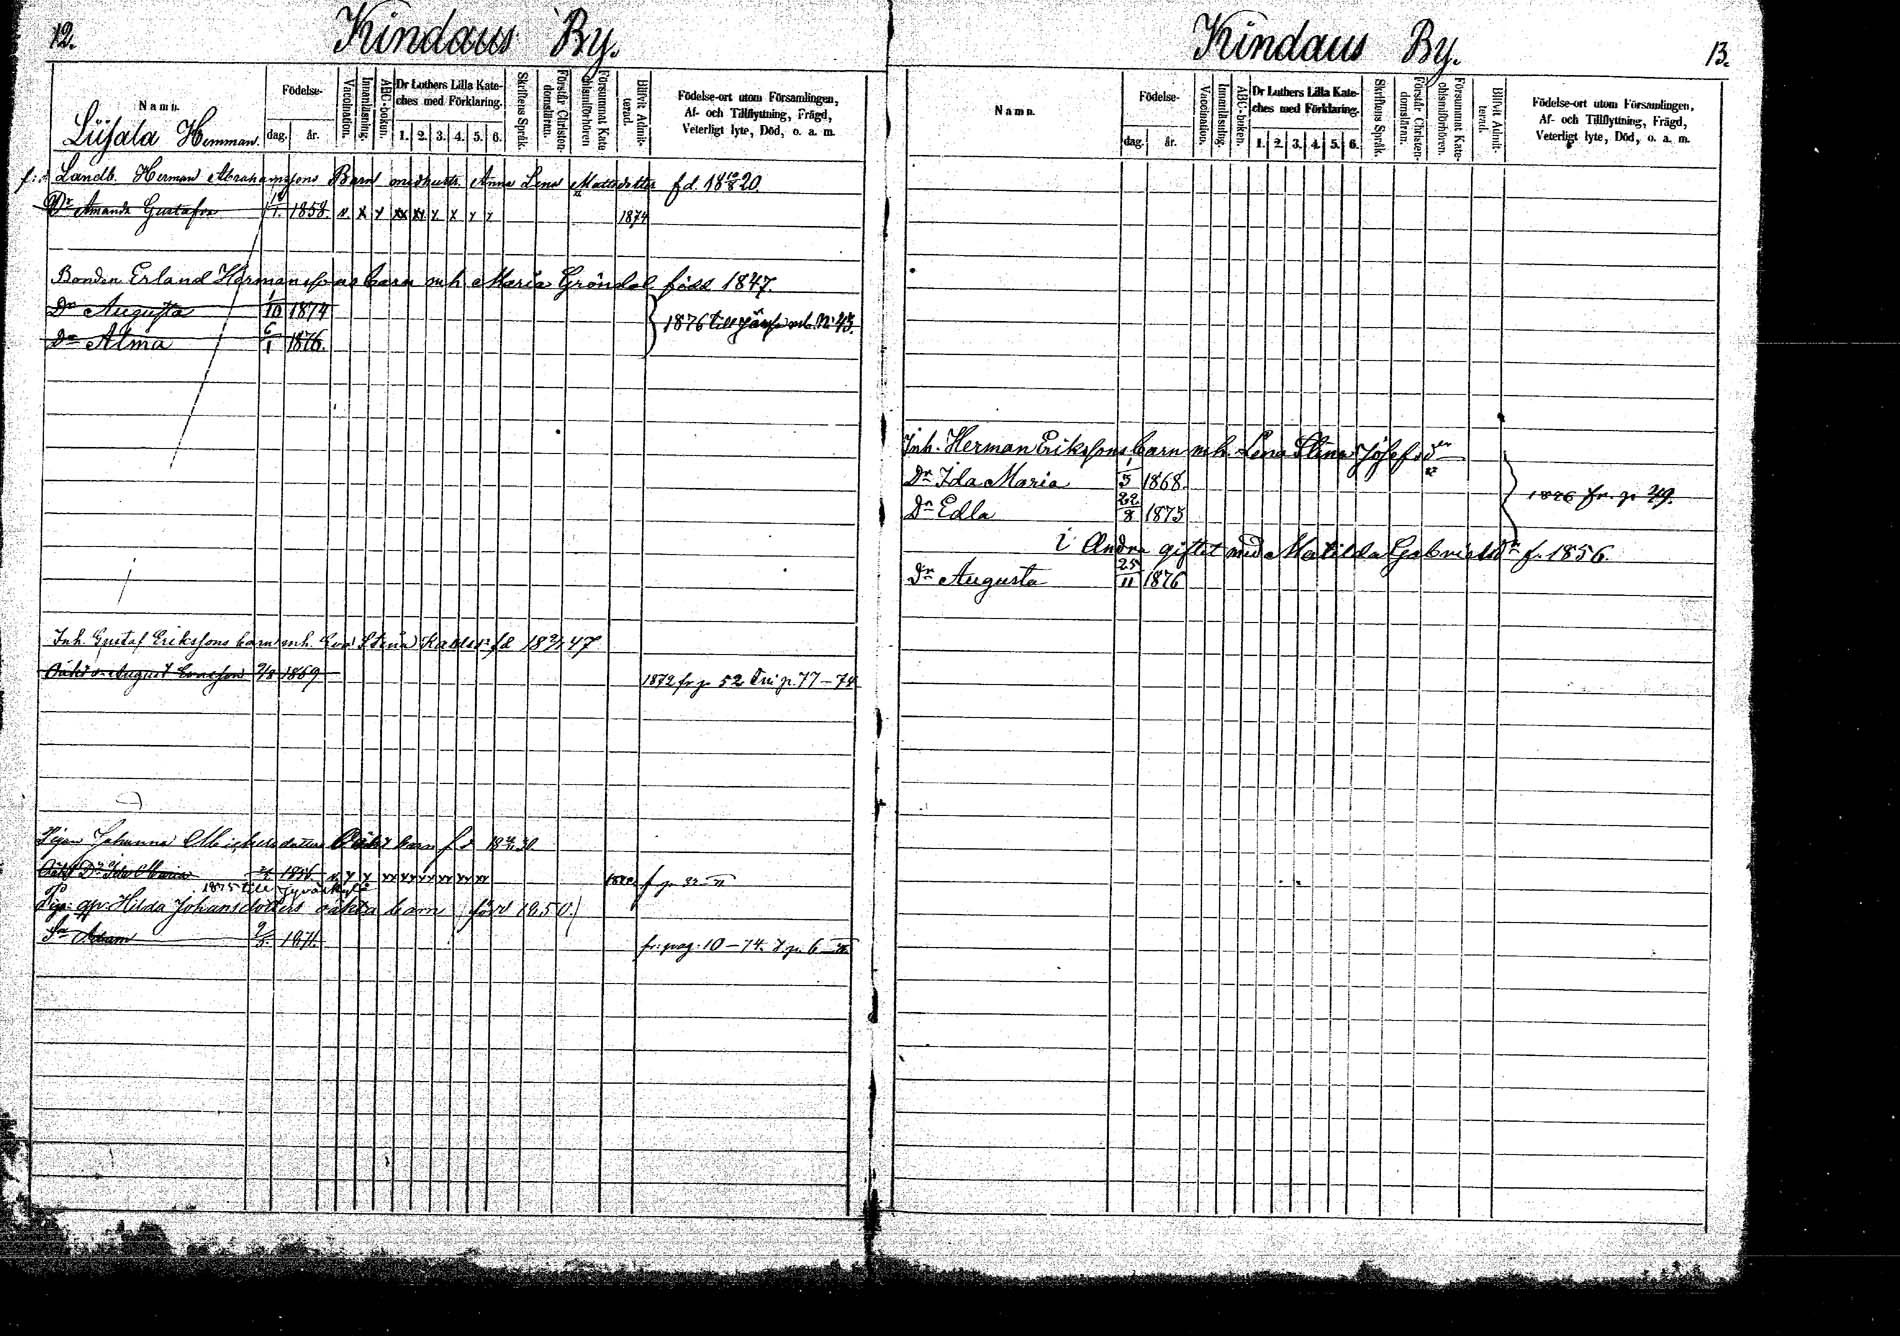 12.
Kindaus By.
Namn.
Liisala Hemman.
Födelse-
dag. år.
Vaccination.
Innanläsning.
ABC-boken.
Dr Luthers Lilla Kate-
ches med Förklaring.
1. 2. 3. 4. 5. 6.
Skriftens Språk.
Förstår Christen-
domsläran.
Försummat Kate
chismiförhören
Blifvit Admit-
terad.
Födelse-ort utom Församlingen,
Af- och Tillflyttning, Frägd,
Veterligt lyte, Död, o. a. m.
f: d Landb. Herman Abrahamssons Barn med hustr. Anna Lena Mattsdotter fd. 18 10/8 20.
Dr Amanda Gustafva 1858. 1874
Bonden Erland Hermanssons barn m h. Maria Gröndal född 1847.
Dr Augusta 1/10 1874
1876 till
Dr Alma 6/1 1876.
Inh. Gustaf Erikssons barn m h. Eva Stina fd 47
August 1869
1872 fr p 52 p. 77–74
Pigan Johanna Michelsdotters barn f d
Dr Ida Maria
1875 till Jyväskylä
Hilda Johansdotters oäkta barn (född 1850.)
Sn Adam 9/5. 1871.
fr: pag. 10–74.
Kindaus By.
13.
Namn.
Födelse-
dag. år.
Vaccination.
Innanläsning.
ABC-boken.
Dr Luthers Lilla Kate-
ches med Förklaring.
1. 2. 3. 4. 5. 6.
Skriftens Språk.
Förstår Christen-
domsläran.
Försummat Kate-
chismiförhören.
Blifvit Admit-
terad.
Födelse-ort utom Församlingen,
Af- och Tillflyttning, Frägd,
Veterligt lyte, Död, o. a. m.
Inh. Herman Erikssons barn m h. Lena Stina Josefsd
Dr Ida Maria 1/5 1868.
1876 fr. p 49.
Dr Edla 22/8 1873
i Andra giftet med Matilda Gabrielsdr f. 1856.
Dr Augusta 25/11 1876